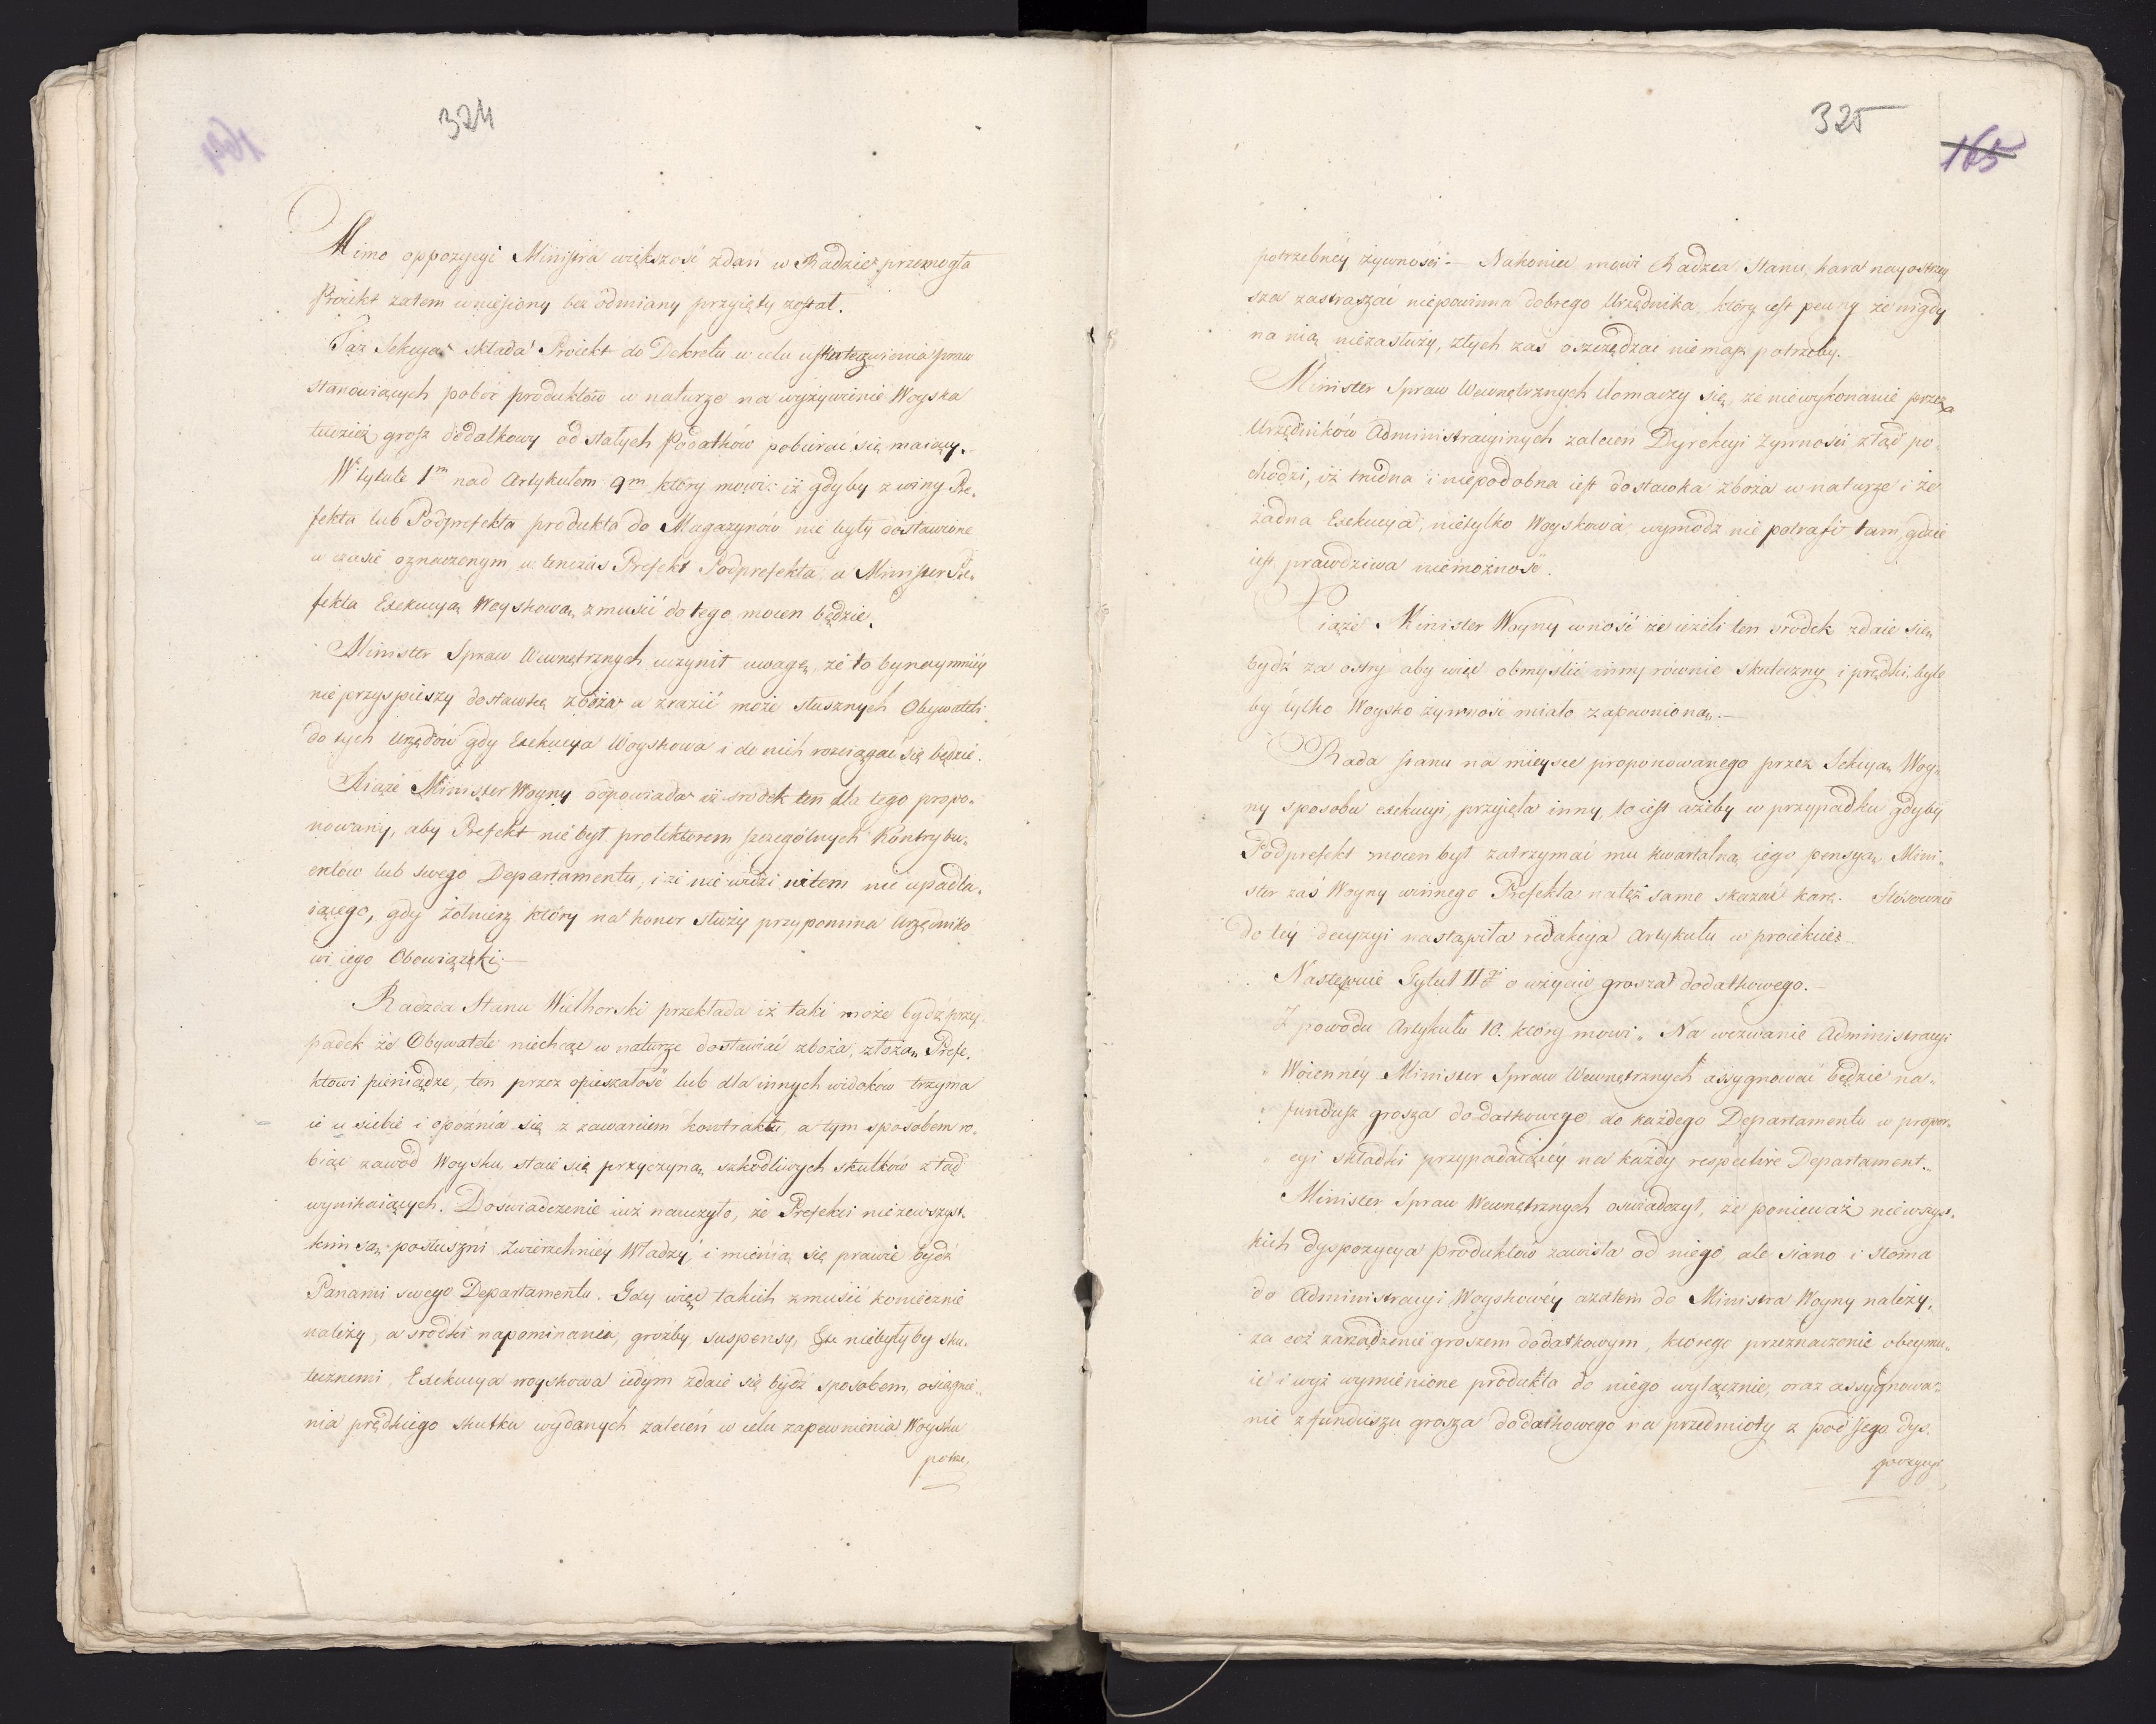 324
Mimo oppozycyi Ministra większość zdań w Radzie przemogła
Proiekt zatem wniesiony bez odmiany przyięty został.
Taż Sekcya składa Proiekt do Dekretu w celu uskutecznienia praw
stanowiących pobór produktów w naturze na wyżywienie Woyska
tudzież grosz dodatkowy od stałych Podatków pobierać się maiący.
W tytule 1m nad Artykułem 9m który mowi: iż gdyby z winy Pre-
fekta lub Podprefekta produkta do Magazynów nie były dostawione
w czasie oznaczonym, w tenczas Prefekt Podprefekta, a Minister Pre-
fekta Exekucyą Woyskową zmusić do tego mocen będzie.
Minister Spraw Wewnętrznych uczynił uwagę, że to bynaymniey
nie przyspieszy dostawkę zboża a zrazić może słusznych Obywateli
do tych Urzędów gdy Exekucya Woyskowa i do nich rozciągać się będzie.
Xiąże Minister Woyny odpowiada iż srodek ten dla tego propo-
nowany, aby Prefekt nie był protektorem szczególnych Kontrybu-
entów lub swego Departamentu, i że nie widzi w tem nic upadla-
iącego, gdy żołnierz który na honor służy przypomina Urzędniko
wi iego Obowiązki.—
Radzca Stanu Wielhorski przekłada iż taki może bydź przy-
padek że Obywatele niechcąc w naturze dostawiać zboża, złożą Prefe-
ktowi pieniądze, ten przez opieszałość lub dla innych widoków trzyma
ie u siebie i opoźnia się z zawarciem kontraktu, a tym sposobem ro-
biąc zawód Woysku, staie się przyczyną szkodliwych skutków ztąd
wynikaiących. Doświadczenie iuż nauczyło, że Prefekci nie zewszyst-
kim są posłuszni Zwierzchniey Władzy, i mienią się prawie bydź
Panami swego Departamentu. Gdy więc takich zmusić koniecznie
należy, a srodki napominania, groźby, suspensy, &c niebyłyby sku-
tecznemi, Exekucya woyskowa iedym zdaie się bydź sposobem, osiągnie-
nia prędkiego skutku wydanych zaleceń w celu zapewnienia Woysku
potrze-
325
165
potrzebnéy żywności.— Nakoniec mowi Radzca Stanu, kara nayostrzey
sza zastraszać niepowinna dobrego Urzędnika, który iest pewny że nigdy
na nią niezasłuży, złych zaś oszczędzać niemasz potrzeby.
Minister Spraw Wewnętrznych tłomaczy się, że niewykonanie przez
Urzędników Administracyinych zaleceń Dyrekcyi Żywności ztąd po-
chodzi, iż trudna i niepodobna iest dostawka zboża w naturze i że
żadna Exekucya, nietylko Woyskowa, wymodz nie potrafi tam, gdzie
iest prawdziwa niemożność.
Xiąże Minister Woyny wnosi że ieżeli ten srodek zdaie się
bydź za ostry aby więc obmyślić inny równie skuteczny i prędki, byle
by tylko Woysko żywność miało zapewnioną.—
Rada Stanu na mieysce proponowanego przez Sekcyą Woy-
ny sposobu exekucyi, przyięła inny, to iest ażeby w przypadku gdyby
Podprefekt mocen był zatrzymać mu kwartalną iego pensyą, Mini-
ster zaś Woyny winnego Prefekta na też same skazać karę. Stosownie
do téy decyzyi nastąpiła redakcya Artykułu w proiekcie.
Następnie Tytuł II o użyciu grosza dodatkowego.—
Z powodu Artykułu 10. który mowi „Na wezwanie Administracyi
„Woienney Minister Spraw Wewnętrznych assygnować będzie na-
„fundusz grosza dodatkowego do każdego Departamentu w propor-
„cyi składki przypadaiącéy na każdy respective Departament.„
Minister Spraw Wewnętrznych oswiadczył, że ponieważ niewszyst-
kich dyspozycya produktów zawisła od niego, ale siano i słoma
do Administracyi Woyskowéy a zatem do Ministra Woyny należy,
za coż zarządzenie groszem dodatkowym, ktorego przeznaczenie obeymu-
ie i wyż wymienione produkta do niego wyłącznie, oraz assygnowa-
nie z funduszu grosza dodatkowego na przedmioty z pod Jego dys-
pozycyi